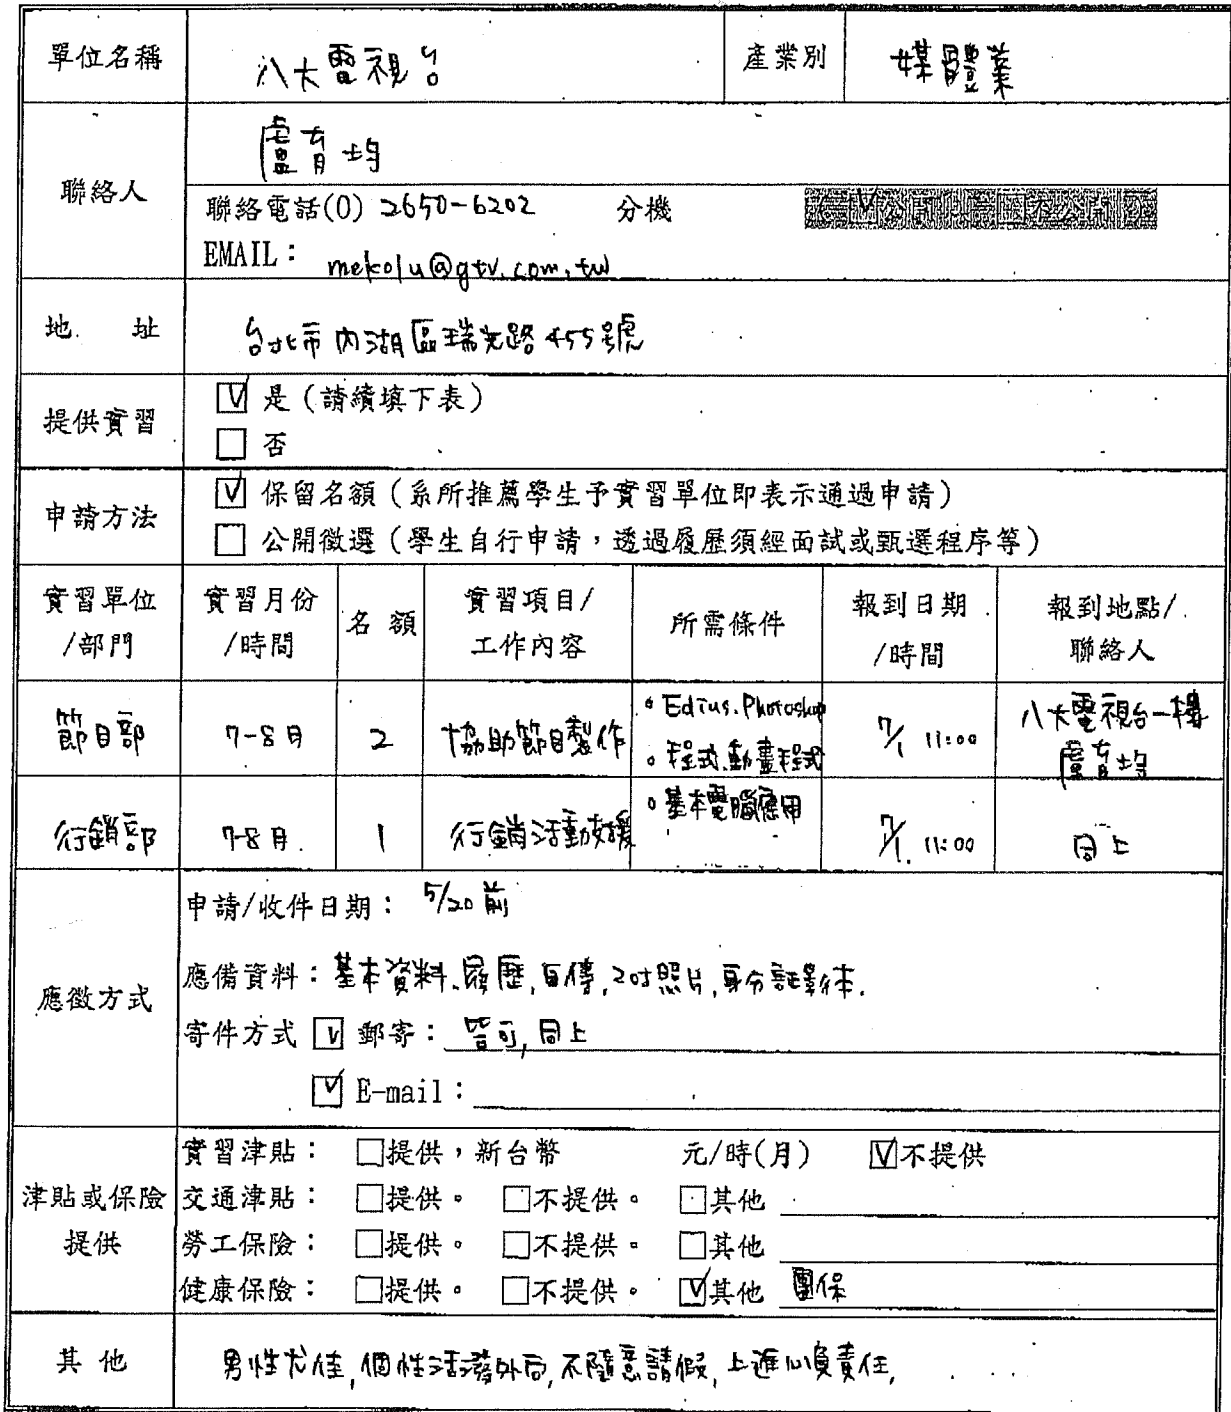 單位名稱 八大電視台 產業別 媒體業
聯絡人 盧育均
聯絡電話(O) 2650-6202 分機
EMAIL： mekolu@gtv.com.tw
地 址 台北市內湖區瑞光路455號
提供實習 ☑ 是（請續填下表）
☐ 否
申請方法 ☑ 保留名額（系所推薦學生予實習單位即表示通過申請）
☐ 公開徵選（學生自行申請，透過履歷須經面試或甄選程序等）
實習單位/部門 實習月份/時間 名額 實習項目/工作內容 所需條件 報到日期/時間 報到地點/聯絡人
節目部 7-8月 2 協助節目製作 。Edius.Photoshop 。程式.動畫程式 7/1 11:00 八大電視台一樓 盧育均
行銷部 7-8月. 1 行銷活動支援 。基本電腦應用 7/1. 11:00 同上
應徵方式 申請/收件日期： 5/20前
應備資料：基本資料、履歷,自傳,2吋照片,身分證影本.
寄件方式 ☑ 郵寄：皆可,同上
☑ E-mail：
津貼或保險提供 實習津貼： ☐提供，新台幣 元/時(月) ☑不提供
交通津貼： ☐提供。 ☐不提供。 ☐其他
勞工保險： ☐提供。 ☐不提供。 ☐其他
健康保險： ☐提供。 ☐不提供。 ☑其他 團保
其他 男性尤佳,個性活潑外向,不隨意請假,上進心負責任,